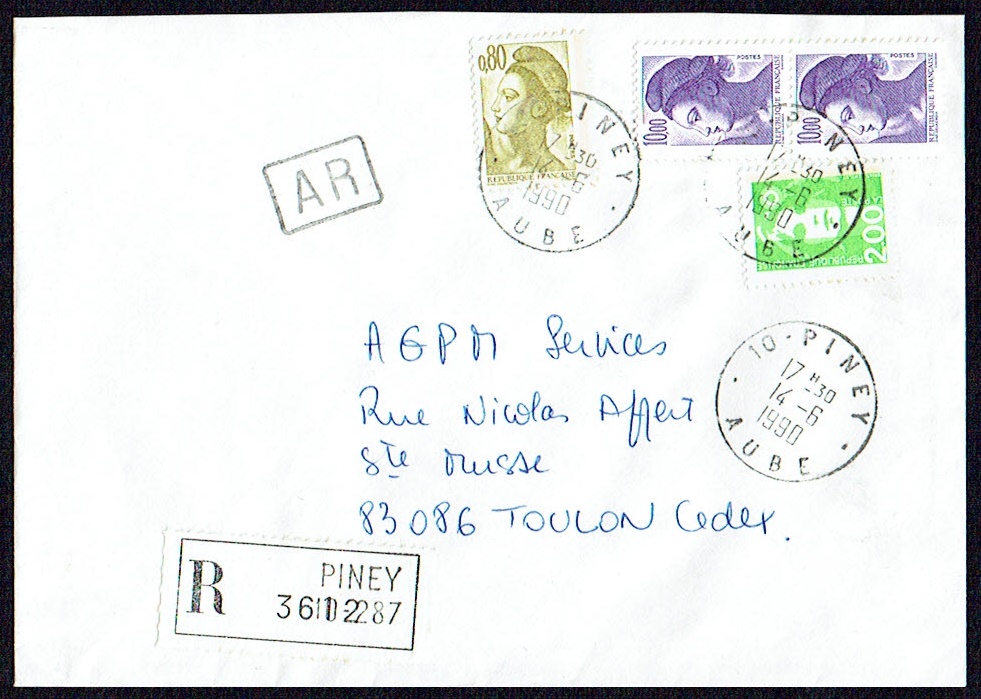 0,80
REPUBLIQUE FRANÇAISE
POSTES
10,00
REPUBLIQUE FRANÇAISE
POSTES
10,00
REPUBLIQUE FRANÇAISE
LA POSTE
2,00
REPUBLIQUE FRANÇAISE
PINEY
17 H30
14-6
1990
AUBE
PINEY
17 H30
14-6
1990
AUBE
AR
10-PINEY
17 H30
14-6
1990
AUBE
AGPM Services
Rue Nicolas Appert
Ste Musse
83086 TOULON Cedex.
R PINEY